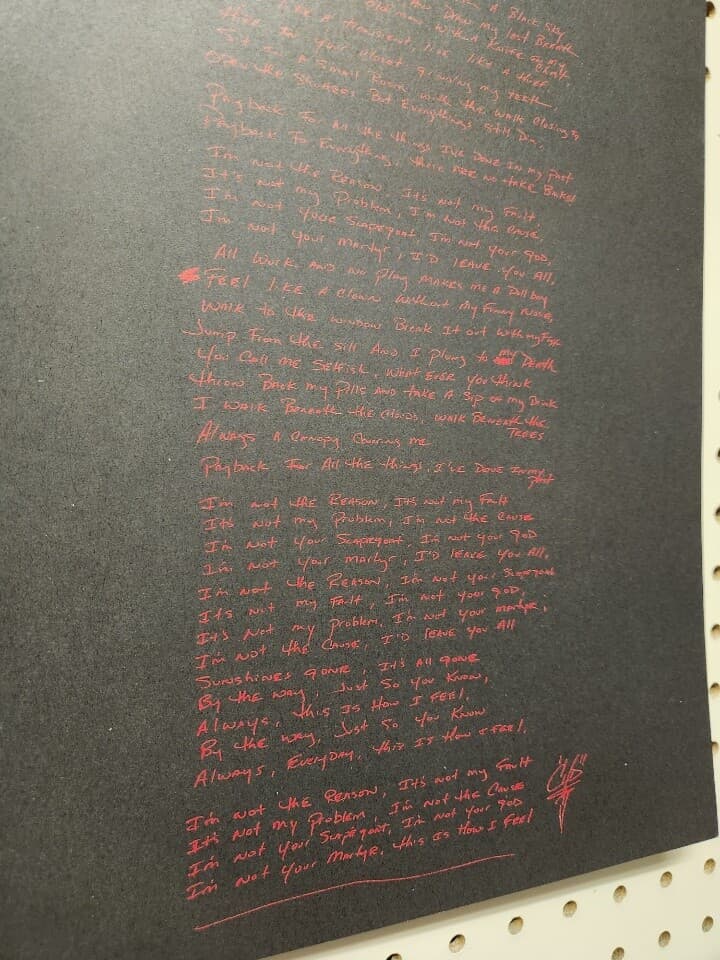 A Black Sky
And Draw my last Breath
without knife on my
like a transient, live like a thief
in your closet grinding my teeth
Sit in a Small Room with the walls Closing in
Open the shutters But Everythings still Dim,
Payback For All the things I've Done In my past
Payback For Everything, there are no take Backs!
I'm not the Reason, It's not my Fault
It's not my Problem, I'm not the cause,
I'm not your Scapegoat, I'm not your god,
I'm not your martyr, I'D leave you All,
All work AND no play makes me A Dull boy
Feel like A clown without my Funny nose,
walk to the window Break It out with my Fist
Jump From the sill And I plung to my Death
You Call me Selfish, what Ever you think
throw Back my Pills and take A Sip of my Drink
I walk Beneath the clouds, walk Beneath the
TREES
Always A Canopy Covering me
Payback For All the things, I've Done In my
past
I'm not the Reason, Its not my Fault
Its not my Problem, I'm not the Cause
I'm Not your Scapegoat I'm not your god
I'm not your martyr, I'D leave you All,
I'm not the Reason, I'm not your Scapegoat
It's not my Fault, I'm not your god,
It's Not my problem, I'm not your martyr,
I'm not the Cause, I'D leave you All
Sunshines gone, It's All gone
By the way, Just So You Know,
Always, this Is How I Feel,
By the way, Just So You Know
Always, Everyday, this Is How I Feel,
I'm not the Reason, It's not my Fault
It's Not my Problem, I'm not the Cause
I'm not your Scapegoat, I'm Not your god
I'm not your Martyr, this Is How I Feel